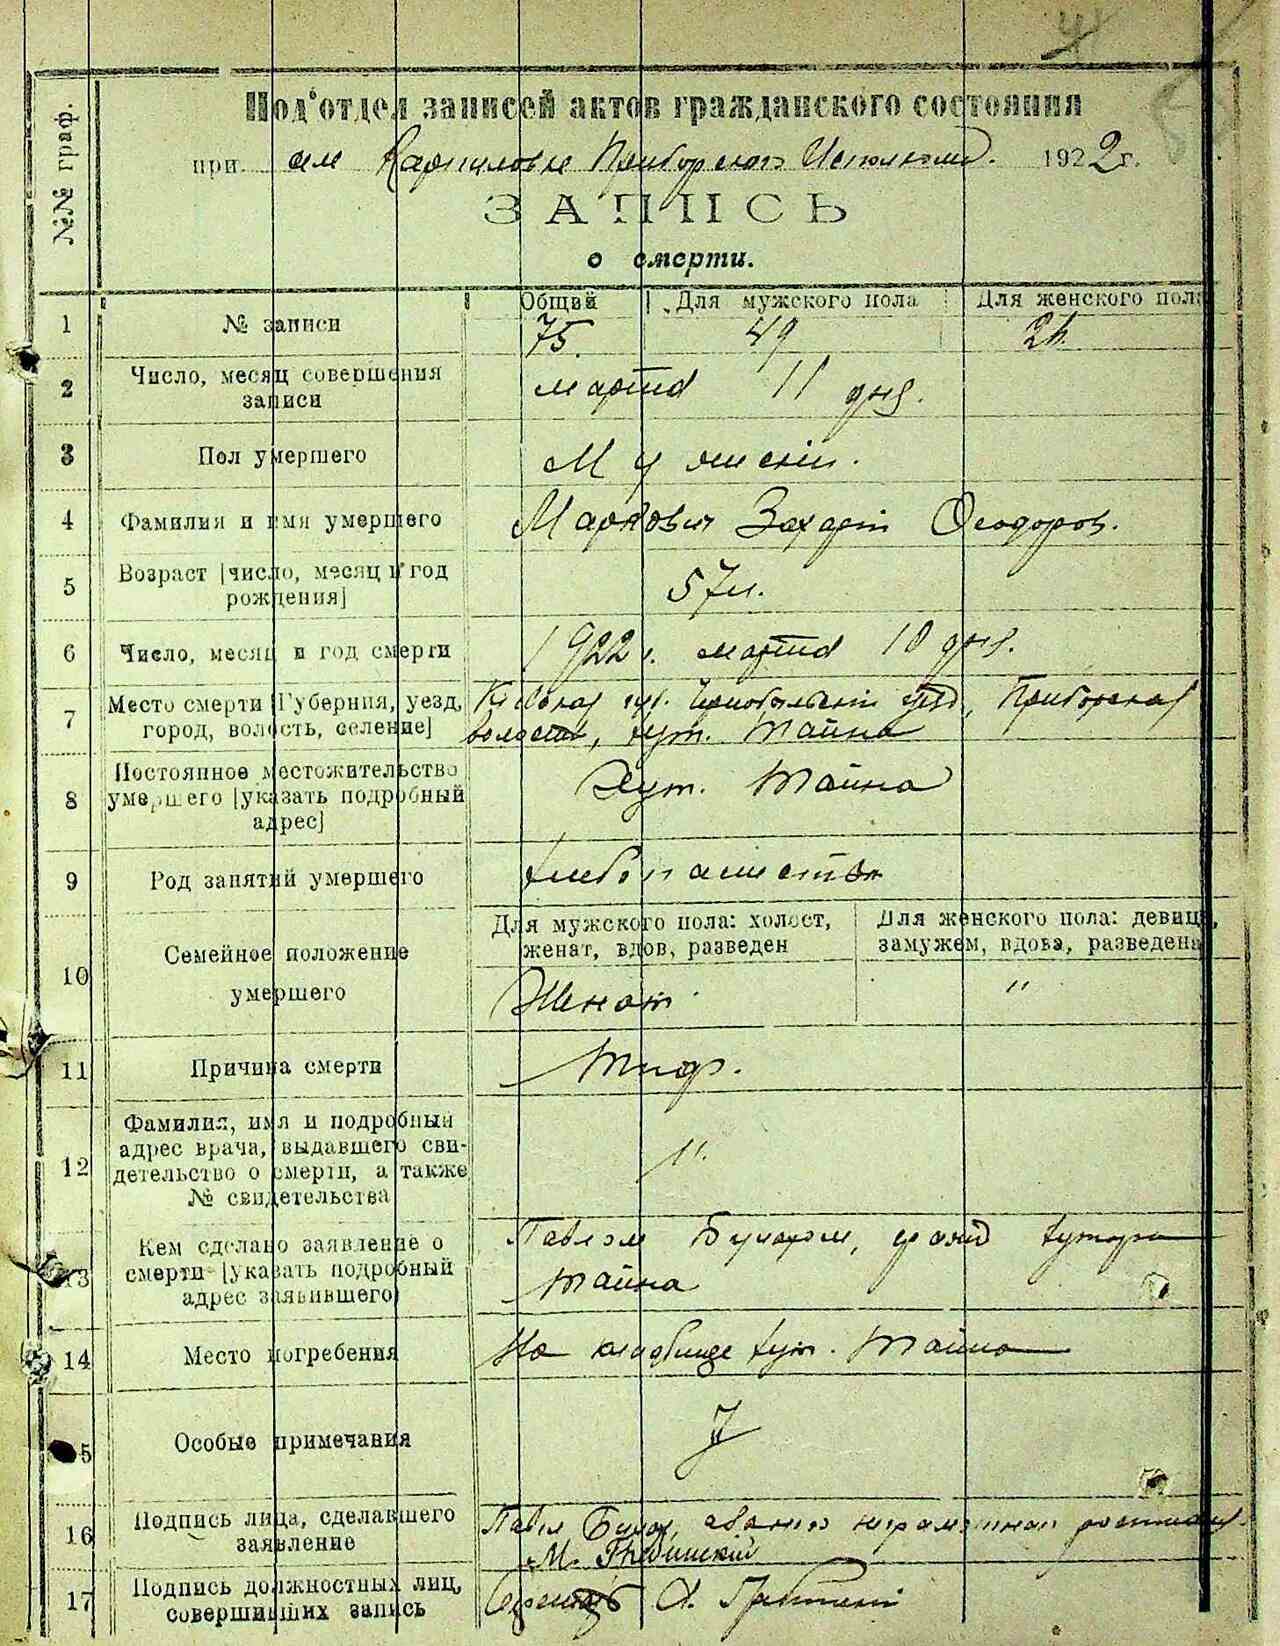 Под'отдел записей актов гражданского состояния
при Исполкома. 1922 г.
ЗАПИСЬ
о смерти.
№№ граф.
Общий Для мужского пола Для женского пола
1 № записи 75. 49
2 Число, месяц совершения записи марта 11 дня.
3 Пол умершего Мужскій.
4 Фамилия и имя умершего Захарій Феодоров.
5 Возраст [число, месяц и год рождения] 57 л.
6 Число, месяц и год смерти 1922 г. марта 10 дня.
7 Место смерти [Губерния, уезд, город, волость, селение] Киевская губ. Чернобыльскій уезд, Приборская
волость, хут. Тайна
8 Постоянное местожительство умершего [указать подробный адрес] Хут. Тайна
9 Род занятий умершего хлебопашество
10 Семейное положение умершего
Для мужского пола: холост, женат, вдов, разведен
Для женского пола: девица, замужем, вдова, разведена
Женат. "
11 Причина смерти Тиф.
12 Фамилия, имя и подробный адрес врача, выдавшего свидетельство о смерти, а также № свидетельства "
13 Кем сделано заявление о смерти [указать подробный адрес заявившего] Павлом хутора
Тайна
14 Место погребения На кладбище хут. Тайна
5 Особые примечания
16 Подпись лица, сделавшего заявление Павел
М.
17 Подпись должностных лиц, совершивших запись